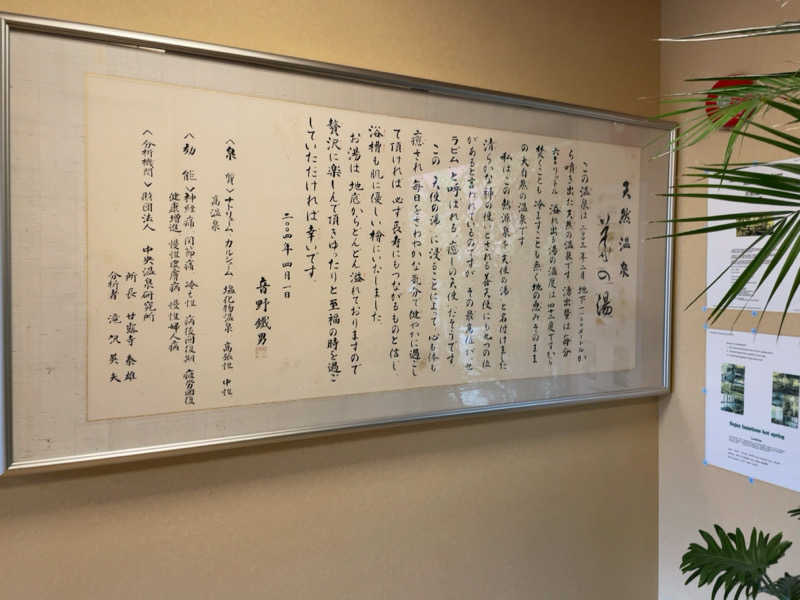 天然温泉
美の湯
この温泉は 二〇〇三年二月 地下一一〇〇メートルか
ら噴き出た天然の温泉です 湧出量は毎分
リットル 溢れ出る湯の温度は 四十三度ですから
焚くことも 冷ますことも無く 地の恵みそのまま
の大自然の温泉です
私はこの熱源泉を 天使の湯 と名付けました
清らかな神の使いとされる各天使にも九つの位
があると言われているのですが その最高位が 七
ラビムと呼ばれる 癒しの天使 だそうです
この 天使の湯 に浸ることによって 心も体も
癒され 毎日をさわやかな気分で 健やかに過ごし
て頂ければ 必ず長寿にもつながるものと信じ
浴槽も肌に優しい 檜にいたしました
お湯は 地底からどんどん溢れておりますので
贅沢に楽しんで頂き ゆったりと至福の時を過ご
していただければ 幸いです.
二〇〇四年 四月一日
音野鐵男
〈泉 質〉ナトリウム カルシウム 塩化物温泉 高張性 中性
高温泉
〈効 能〉神経痛 関節痛 冷え性 病後回復期 疲労回復
健康増進 慢性皮膚病 慢性婦人病
〈分析機関〉財団法人 中央温泉研究所
所長 甘露寺 泰雄
分析者 滝沢英夫
Sujex luxurious hot spring